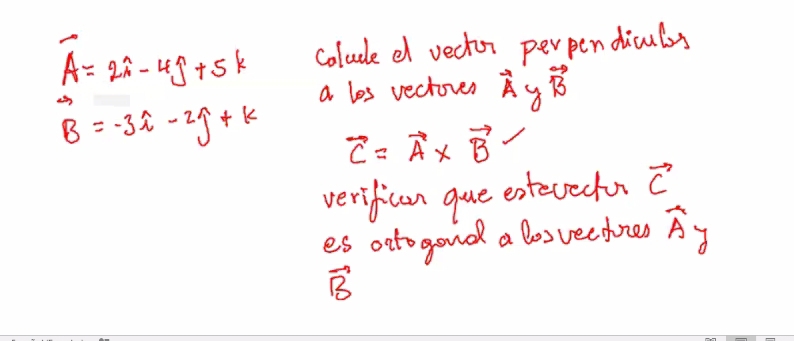 A⃗ = 2î - 4ĵ + 5k
B⃗ = -3î - 2ĵ + k
Calcule el vector perpendiculos
a los vectores A⃗ y B⃗
C⃗ = A⃗ x B⃗ ✓
verificar que este vector C⃗
es ortogonal a los vectores A⃗ y
B⃗